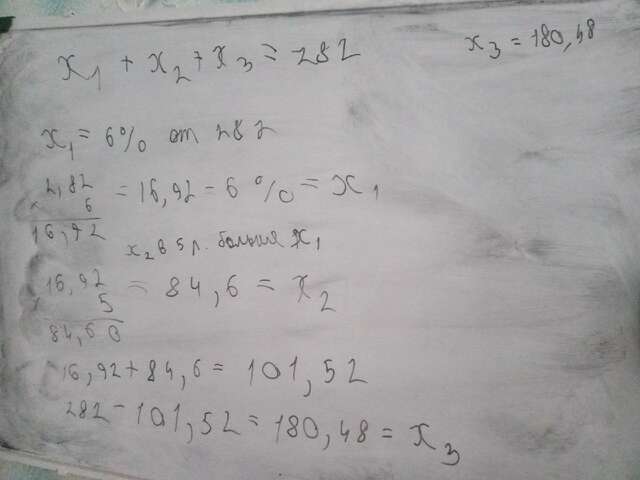 x₁ + x₂ + x₃ = 282
x₃ = 180,48
x₁ = 6% от 282
2,82
× 6
16,92
= 16,92 - 6% = x₁
x₂ в 5 р. больше x₁
16,92
× 5
84,60
= 84,6 = x₂
16,92 + 84,6 = 101,52
282 - 101,52 = 180,48 = x₃